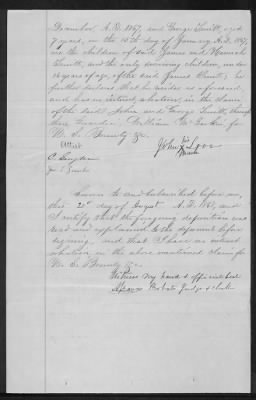 December, A.D. 1857, and George Truitt, aged
7 years, on the 15th day of January A.D. 1867,
are the children of said James and Hannah
Truitt, and the only surviving children, under
16 years of age, of the said James Truitt; he
further declares that he resides as aforesaid,
and has no interest, whatever, in the claim
of the said John and George Truitt, through
their Guardian, William
U.S. Bounty &c.
Attest
C.
John his x mark
Sworn to and subscribed before me,
this 2d day of August A.D. 1867, and
I certify that the foregoing deposition was
read and explained to the deponent before
signing, and that I have no interest
whatever in the above mentioned claim for
U.S. Bounty &c.
Witness my hand & official seal
Probate Judge & clerk